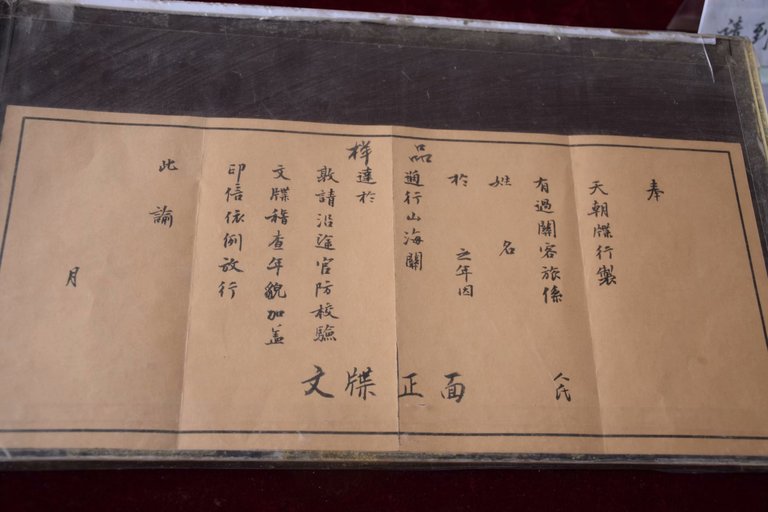 奉
天朝牒行製
有過關客旅係 人氏
姓名
於 之年因
通行山海關
達於
敦請沿途官防校驗
文牒稽查年貌加盖
印信依例放行
此諭
月
样品
文牒正面